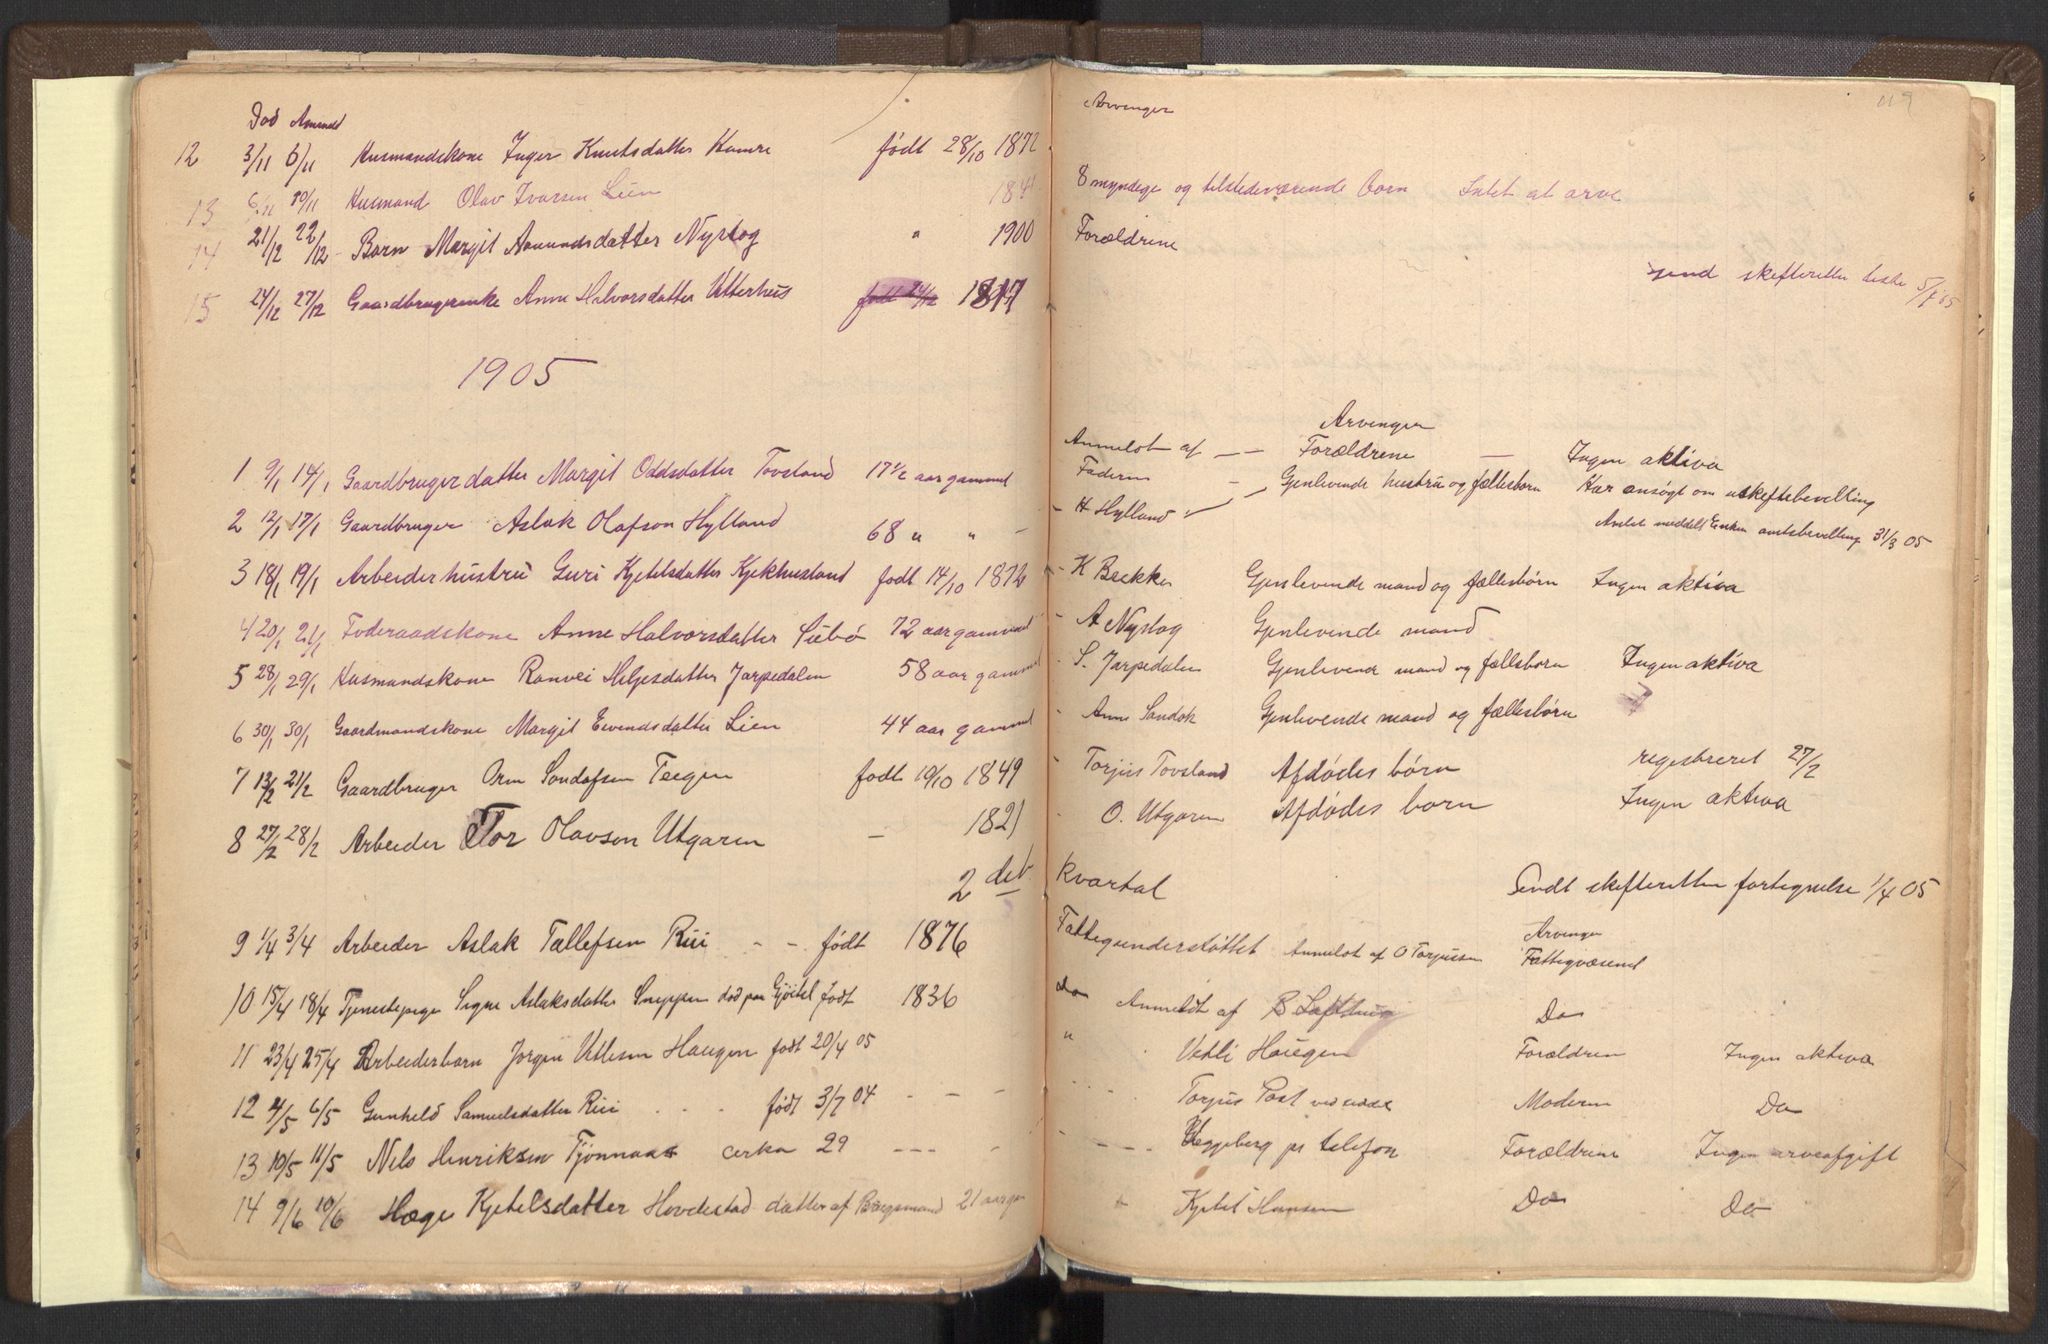 Død Anmeldt
12 3/11 6/11 Husmandskone Inger Knutsdatter Kamre født 28/10 1872
13 6/11 10/11 Husmand Olav Ivarsen Lien 1841
14 21/12 22/12 - Barn Margit Aamundsdatter Nystog " 1900
15 24/12 27/12 Gaardbrugerenke Anne Halvorsdatter Utterhus født 24/12 1817
1905
1 9/1 14/1 Gaardbrugerdatter Margit Oddsdatter Tovsland 17 1/2 aar gammel
2 12/1 17/1 Gaardbruger Aslak Olafson Hylland 68 " " -
3 18/1 19/1 Arbeiderhustru Guri Kjetelsdatter Kjekhusland født 14/10 1872
4 20/1 21/1 Føderaadskone Anne Halvorsdatter Siebø 72 aar gammel
5 28/1 29/1 Husmandskone Ranvei Helgesdatter Jarpedalen 58 aar gammel
6 30/1 30/1 Gaardmandskone Margit Eivendsdatter Lien 44 aar gammel
7 13/2 21/2 Gaardbruger Orm Sondofsen Teigen født 10/10 1849
8 27/2 28/2 Arbeider Tor Olavson Utgaren - 1821
2 det
9 1/4 3/4 Arbeider Aslak Tallefsen Rui - - født 1876
10 15/4 18/4 Tjenestepige Signe Aslaksdatter død paa født 1836
11 23/4 25/4 Arbeiderbarn Jørgen Vetlesen Haugen født 20/4 05
12 4/5 6/5 Gunheld Samuelsdatter Rui . . . født 3/7 04 - - -
13 10/5 11/5 Nels Henriksen Tjønnaas cirka 29 - - - -
14 9/6 10/6 Hæge Kjetelsdatter Hovdestad datter af Bøigsmand 21 aar gam
119
Arvinger
8 myndige og tilstedeværende børn Intet at arve
Forældrene
send skifteretten liste 5/1 05
Arvingen
Anmeldt af -- Forældrene - Ingen aktiva
Faderen
- Gjenlevende hustru og fællesbørn Har ansøgt om uskiftebevilling
- H Hylland
Andet meddelt Enken amtsbevilling 31/3 05
- K Bekken Gjenlevende mand og fællesbørn Ingen aktiva
- A Nystog Gjenlevende mand
- S. Jarpedalen Gjenlevende mand og fællsbørn Ingen aktiva
- Anne Sandok Gjenlevende mand og fællesbørn
- Torjus Tovsland Afdødes børn regestreret 27/2
- O. Utgaren Afdødes børn Ingen aktiva
kvartal Sendt skifteretten fortegnelse 1/4 05
Arvinger
Fattigunderstøttet Anmeldt af O Torjussen Fattigvæsenet
do Anmeldt af B Loftsuin Do
" Vetli Haugen Forældren Ingen aktiva
Torjus Post Moderen Do
- - - - Heggeberg pr telefon Forældrene Ingen arveafgift
Kjetil Hansen Do Do